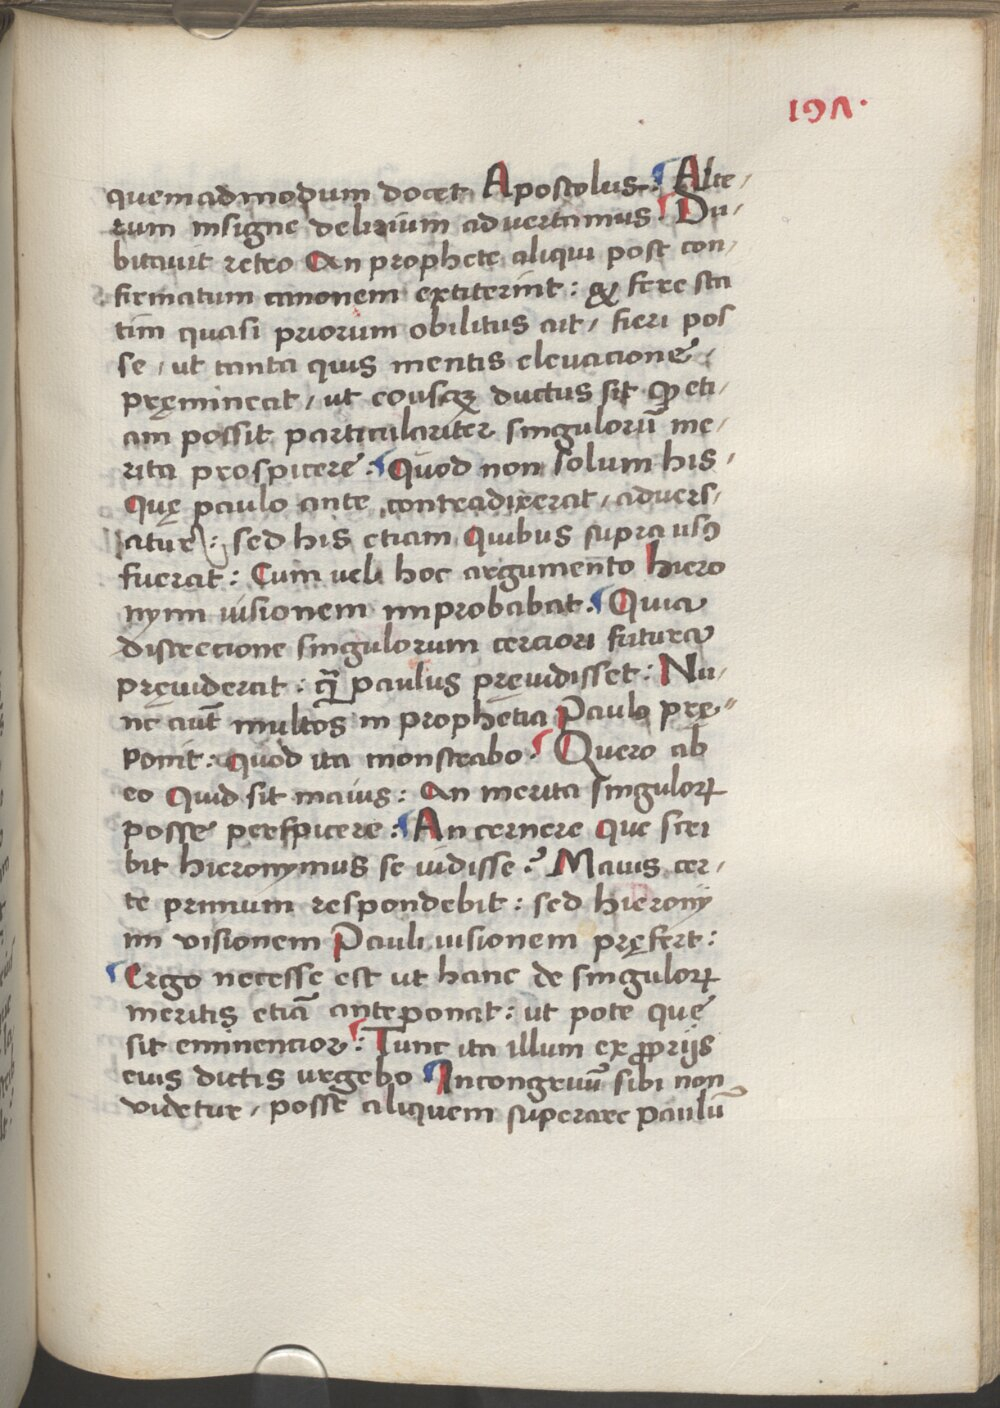 197.
quemadmodum docet Apostolus. Alte/
rum insigne delirium advertamus. Du/
bitavit retro An prophete aliqui post con/
firmatum canonem extiterint: & fere sta
tim quasi priorum oblitus ait, fieri pos
se, ut tanta quis mentis elevacione,
pręmineat, ut eousqꝫ ductus sit ꝙ eti/
am possit particulariter singulorū me/
rita prospicere. Quod non solum his,
Quę paulo ante contradixerat, advers/
atur: sed his etiam Quibus supra usꝰ
fuerat: Cum vel hoc argumento Hiero
nymi visionem improbabat. Quia
discrecione singulorum cerciori futura
pręviderat: q̄ paulus pręvidisset: Nu/
nc aut̄ multos in prophetia Paulo prę/
ponit: Quod ita monstrabo. Quero ab
eo Quid sit maius: An merita singuloꝝ
posse perspicere: An cernere Que scri
bit hieronymus se vidisse? Maius cer/
te primum respondebit: sed hierony
mi visionem Pauli visionem pręfert:
Ergo necesse est ut hanc de singuloꝝ
meritis etiā anteponat: ut pote quę
sit eminencior: Tunc ita illum ex ꝓprijs
eius dictis urgebo Incongruū sibi non
videtur, posse aliquem superare paulū